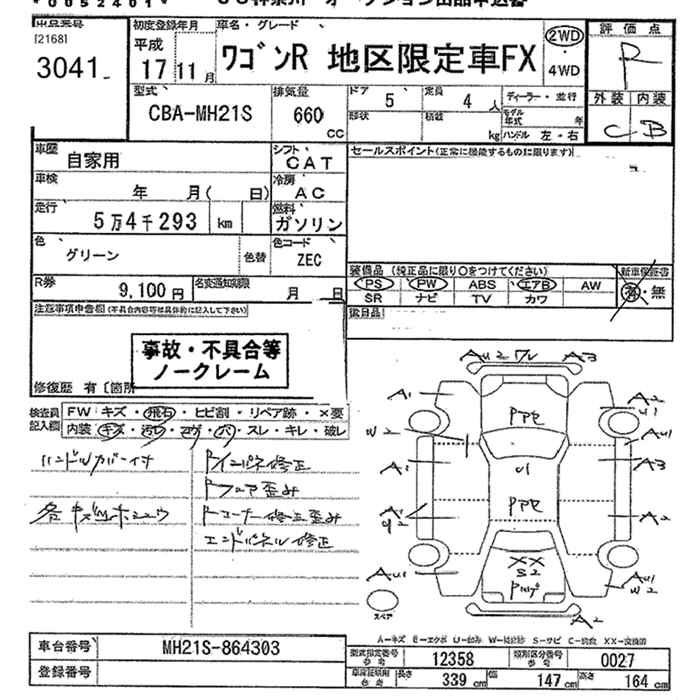 *0052401*
[2168]
3041
初度登録年月
平成
17 11月
車名・グレード
ワゴンR 地区限定車FX
2WD
・
4WD
評価点
R
外装 内装
C B
型式
CBA-MH21S
排気量
660
CC
ドア
5
定員
4 人
形状
積載
kg
ディーラー・並行
モデル年式 年
ハンドル 左・右
車歴
自家用
シフト
CAT
セールスポイント(正常に機能するものに限ります)
車検
年 月( 日)
冷房
AC
走行
5万4千293 km
燃料
ガソリン
色
グリーン
色替
色コード
ZEC
装備品 (純正品に限り○をつけてください)
新車保証書
PS PW ABS エアB AW
SR ナビ TV カワ
有・無
R券
9,100円
名変通知期限
月 日
注意事項申告欄(不具合内容等は具体的に記入して下さい)
後日品
事故・不具合等
ノークレーム
修復歴 有〔箇所
検査員
記入欄
FW キズ・飛石・ヒビ割・リペア跡・×要
内装 キズ・汚レ・コゲ・穴・スレ・キレ・破レ
ハンドルカバー付
Rインパネ修正
Rフロア歪み
各キズ凹ホユウ
Rコーナー修正歪み
エンドパネル修正
AU2 ワレ A3
A1
A2
U1
W2
PPE
AU1
A1
U1
A3
A1
U2
PPE
A2
AU1
××
S2
AU1
W2
スペア
A2
A-キズ E-エクボ U-凹み W-補修跡 S-サビ C-腐食 XX-交換済
車台番号
MH21S-864303
登録番号
型式指定番号
参考
12358
類別区分番号
参考
0027
長さ
339 cm
幅
147 cm
高さ
164 cm